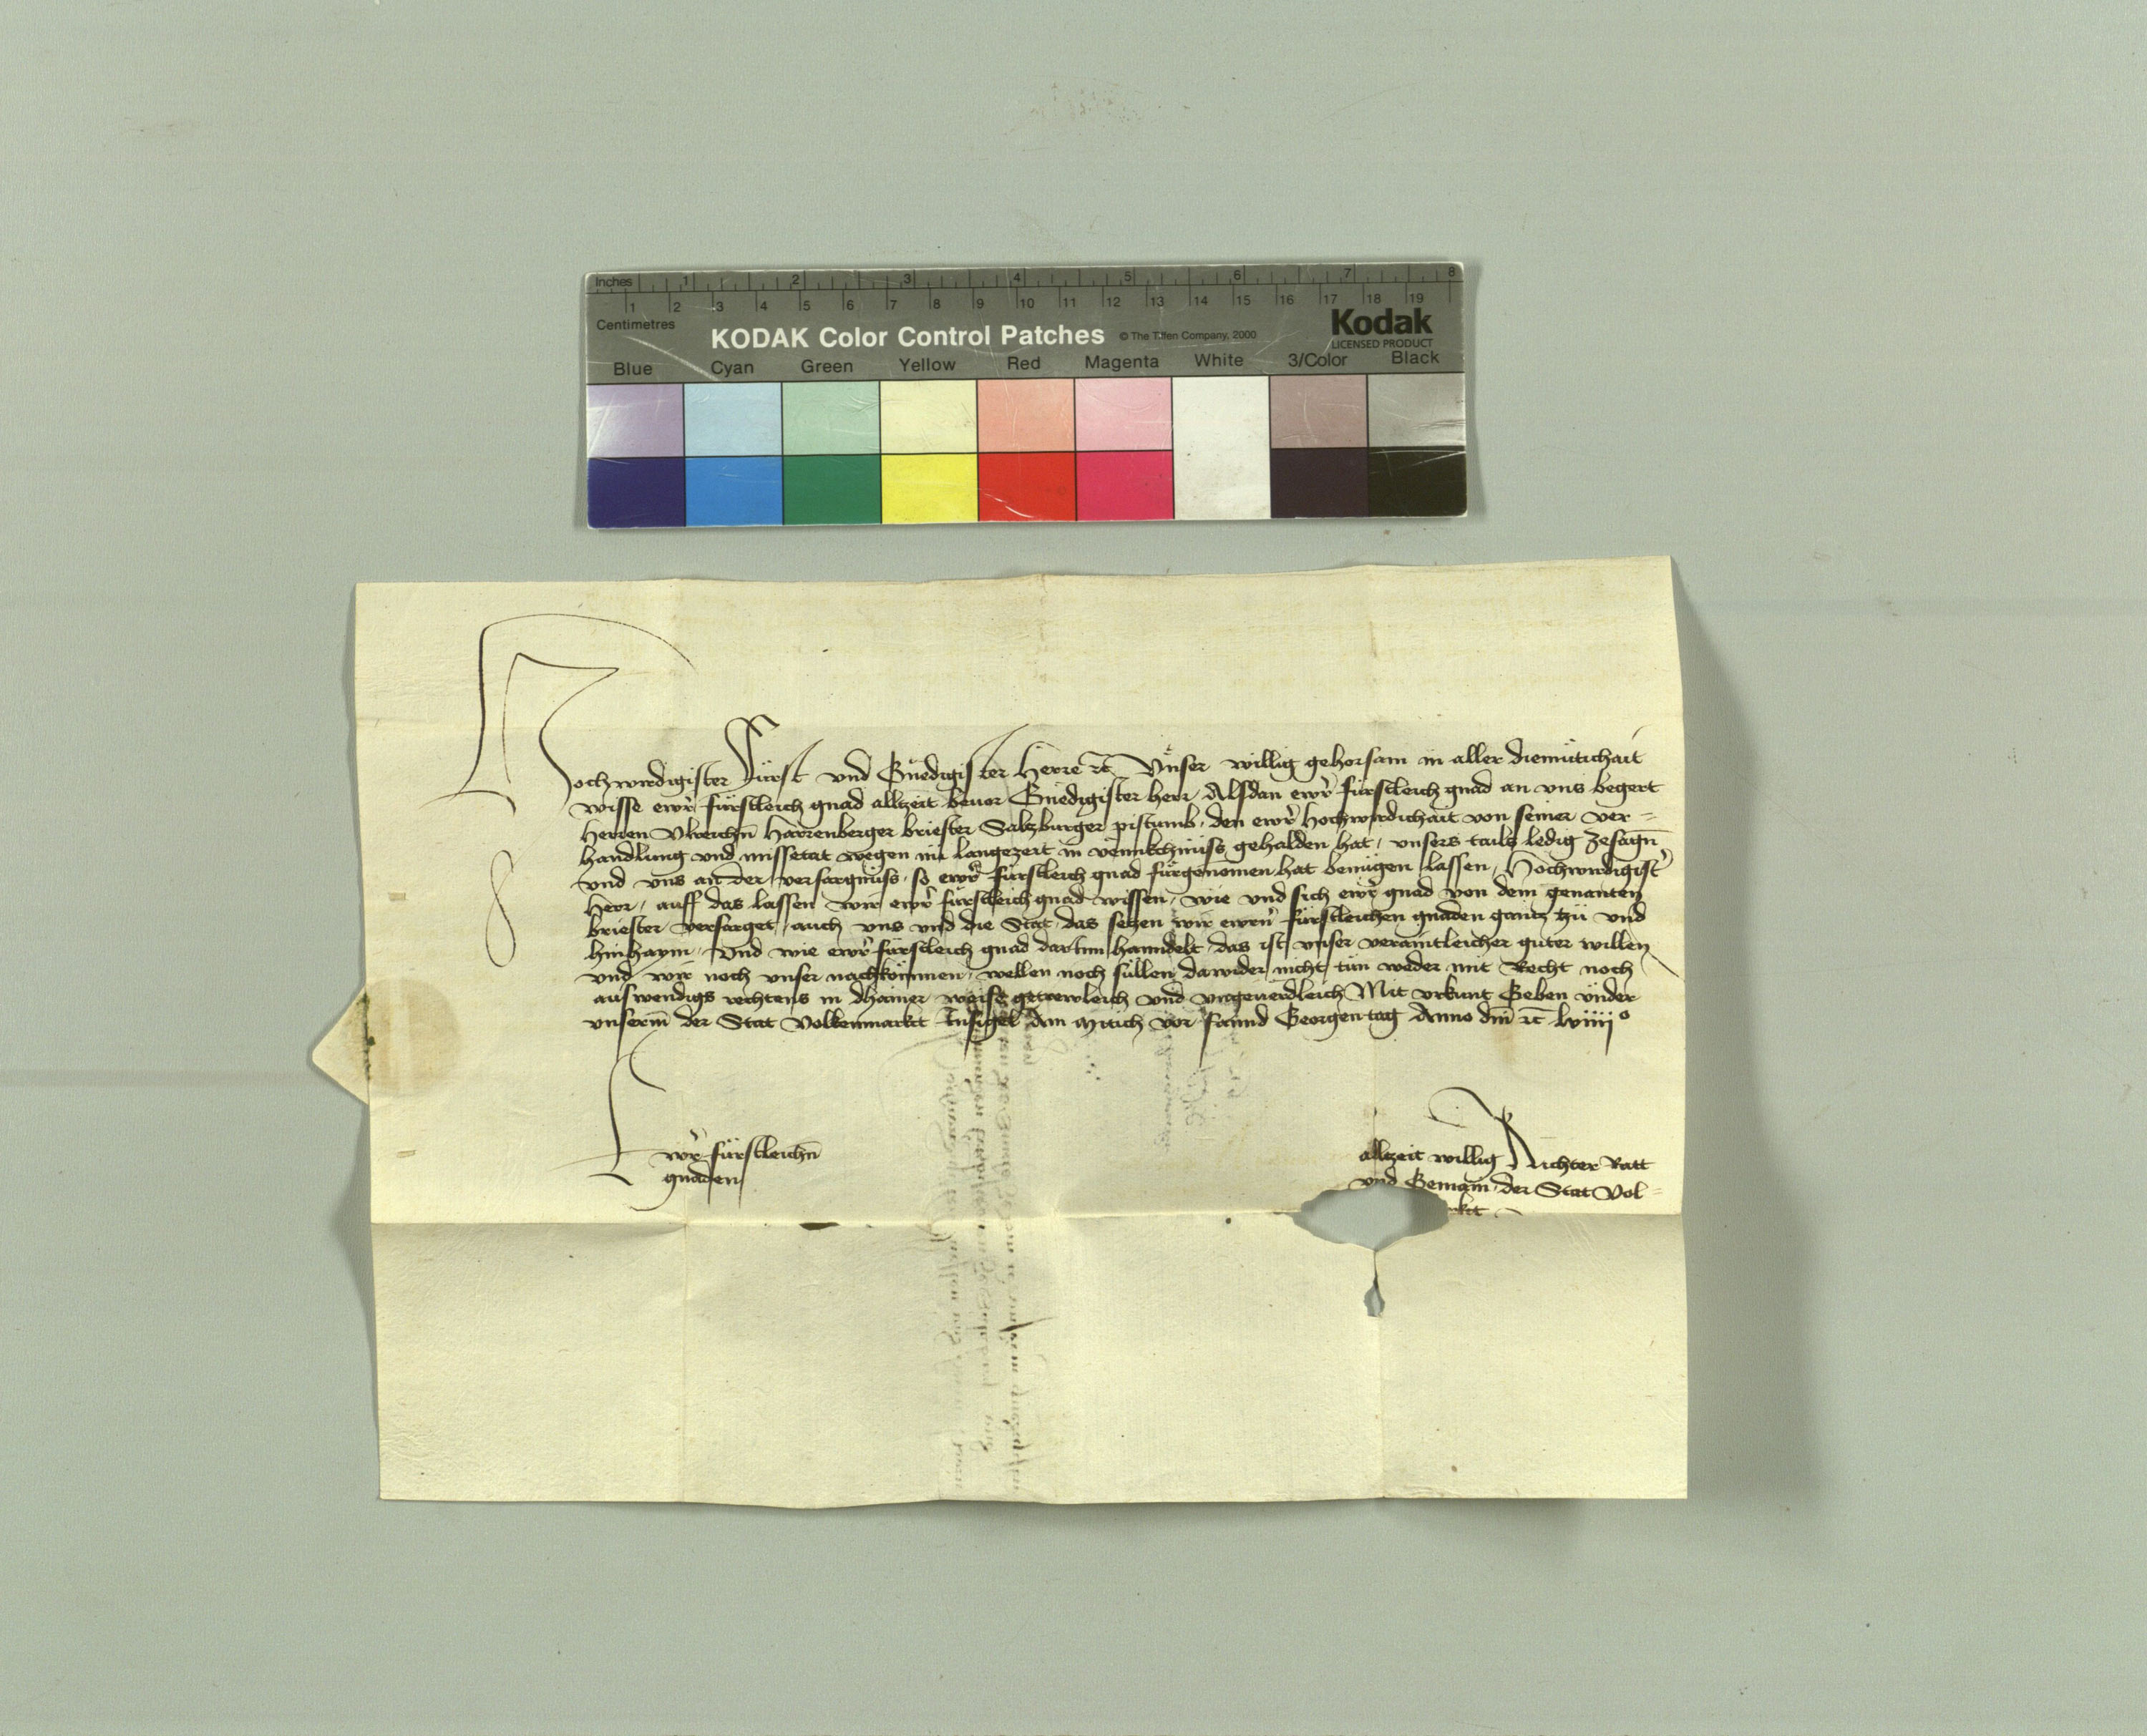 Inches 1 2 3 4 5 6 7 8
1 2 3 4 5 6 7 8 9 10 11 12 13 14 15 16 17 18 19
Centimetres
KODAK Color Control Patches © The Tiffen Company, 2000 Kodak
LICENSED PRODUCT
Blue Cyan Green Yellow Red Magenta White 3/Color Black
Hochwirdigister Fürst vnd Gnedigister Herre etc Vnser willig gehorsam in aller diemütichait
wisse ewr fürstleich gnad allzeit beuor Gnedigister herr Alsdan ewr fürstleich gnad an vns begert
Herren Vlreichn Harrenberger briester Saltzburger pistumb, den ewr Hochwirdichait von seiner ver=
handlung vnd missetat wegen in langezeit in vennkchnüss gehalden hat, vnsers tails ledig zesagn
vnd vns an der versargnüss, so ewr fürstleich gnad fürgenomen hat benügen lassen, Hochwirdigistr
Herr, auff das lassen wir ewr fürstleich gnad wissen, wie vnd sich ewr gnad von dem genanten
briester versarget, auch vns vnd die Stat, das setzen wir ewrn fürstleichen gnaden gantz zü vnd
hinhaym, Vnd wie ewr fürstleich gnad darInn hanndelt, das ist vnser veraintleicher guter willen
vnd wir noch vnser nachkömmen, wellen noch süllen dawider nicht tün weder mit Recht noch
auswendigs rechtens in dhainer weise getrewleich vnd vngeuerdleich Mit vrkunt Geben vnder
vnserm der Stat Volkenmarkt Insigel Am Mitich vor sannd Georgen tag Anno dni etc lviiij°
Ewr fürstleichn
gnaden
allzeit willig Richter Ratt
vnd Gemain der Stat Vol=
rkt